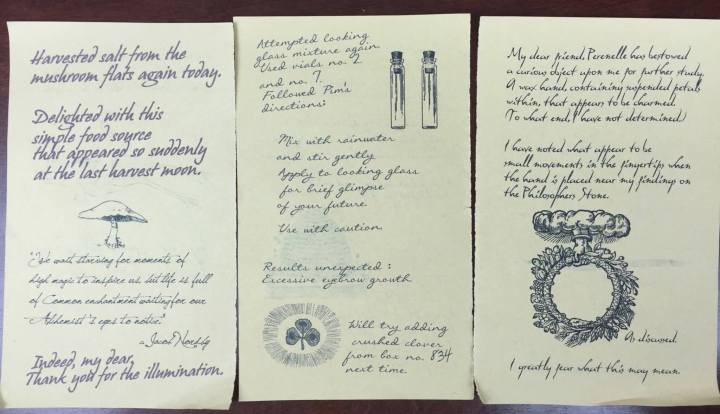 Harvested salt from the
mushroom flats again today.
Delighted with this
simple food source
that appeared so suddenly
at the last harvest moon.
wait starving for moments of
high magic to inspire us, but life is full
of Common enchantment waiting for our
Alchemist's eyes to notice."
Jacob
Indeed, my dear,
Thank you for the illumination.
Attempted looking
glass mixture again
Used vials no. 2
and no. 7.
Followed Pim's
directions:
Mix with rainwater
and stir gently
Apply to looking glass
for brief glimpse
of your future.
Use with caution
Results unexpected:
Excessive eyebrow growth
Will try adding
crushed clover
from box no. 834
next time
My dear friend, Perenelle has bestowed
a curious object upon me for further study.
A wax hand, containing suspended petals
within, that appears to be charmed.
To what end, I have not determined
I have noted what appear to be
small movements in the fingertips when
the hand is placed near my findings on
the Philosophers Stone.
As discussed.
I greatly fear what this may mean.